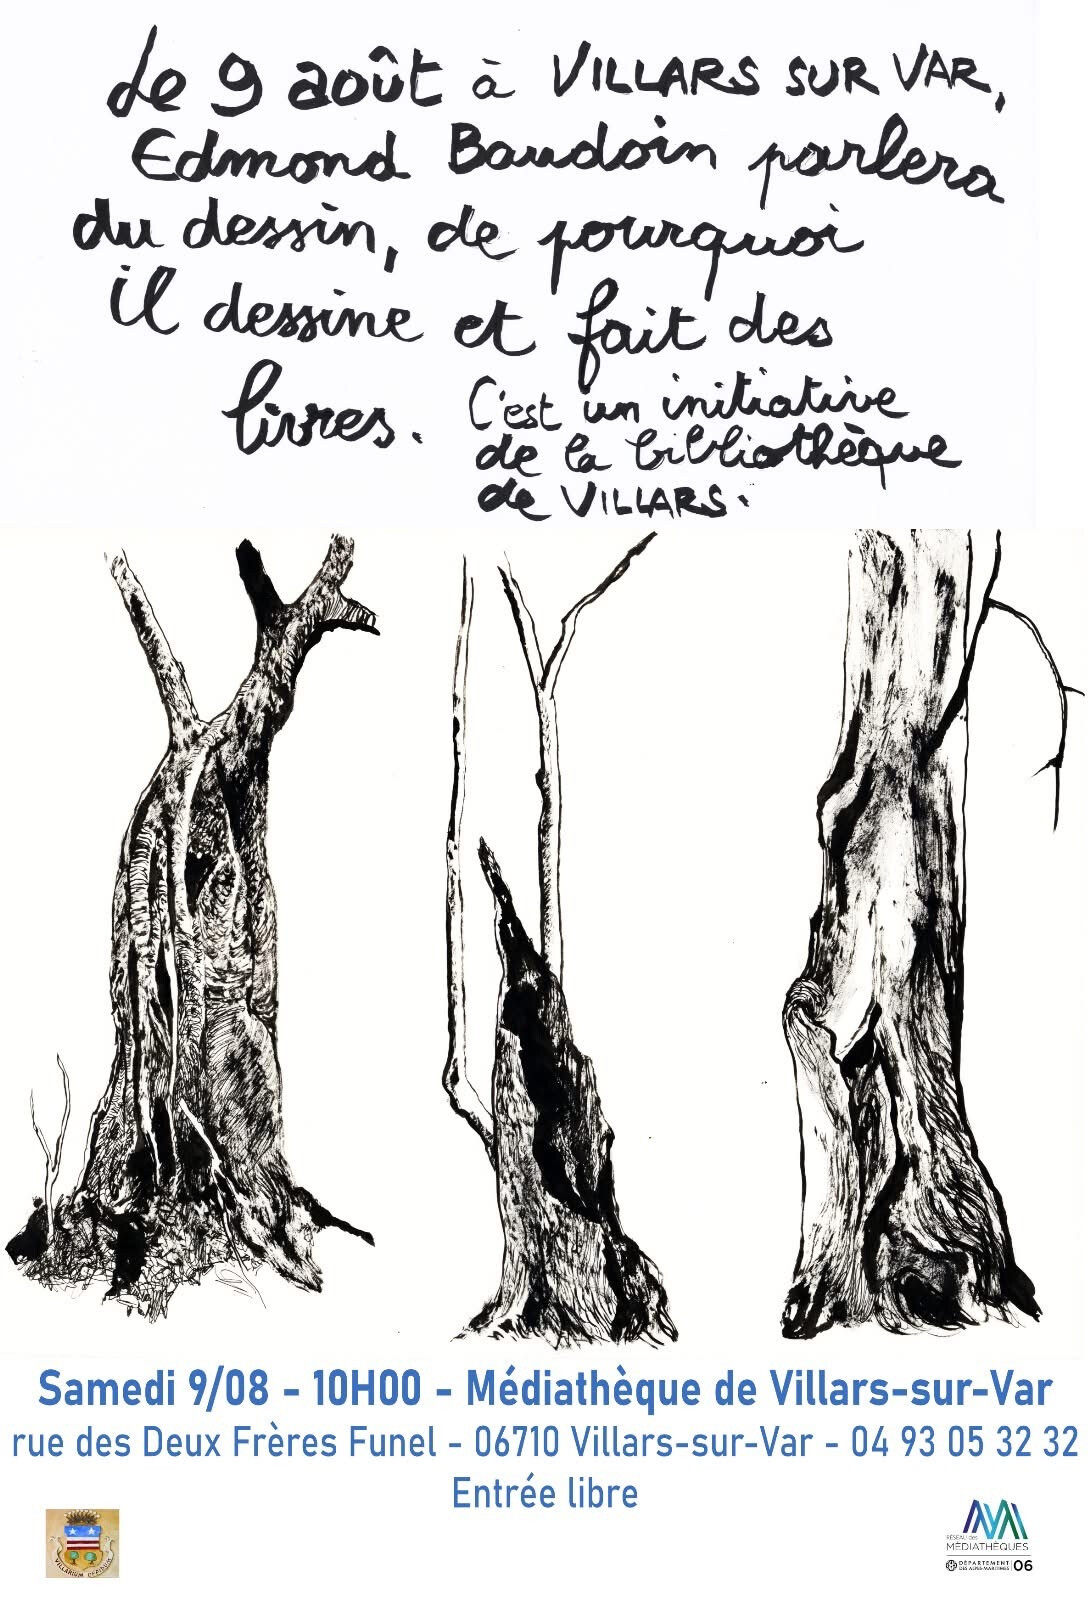 Le 9 août à VILLARS SUR VAR,
Edmond Baudoin parlera
du dessin, de pourquoi
il dessine et fait des
livres.
C'est un initiative
de la bibliothèque
de VILLARS.
Samedi 9/08 - 10H00 - Médiathèque de Villars-sur-Var
rue des Deux Frères Funel - 06710 Villars-sur-Var - 04 93 05 32 32
Entrée libre
VILLARIUM
RÉSEAU des
MÉDIATHÈQUES
DÉPARTEMENT
DES ALPES-MARITIMES
06